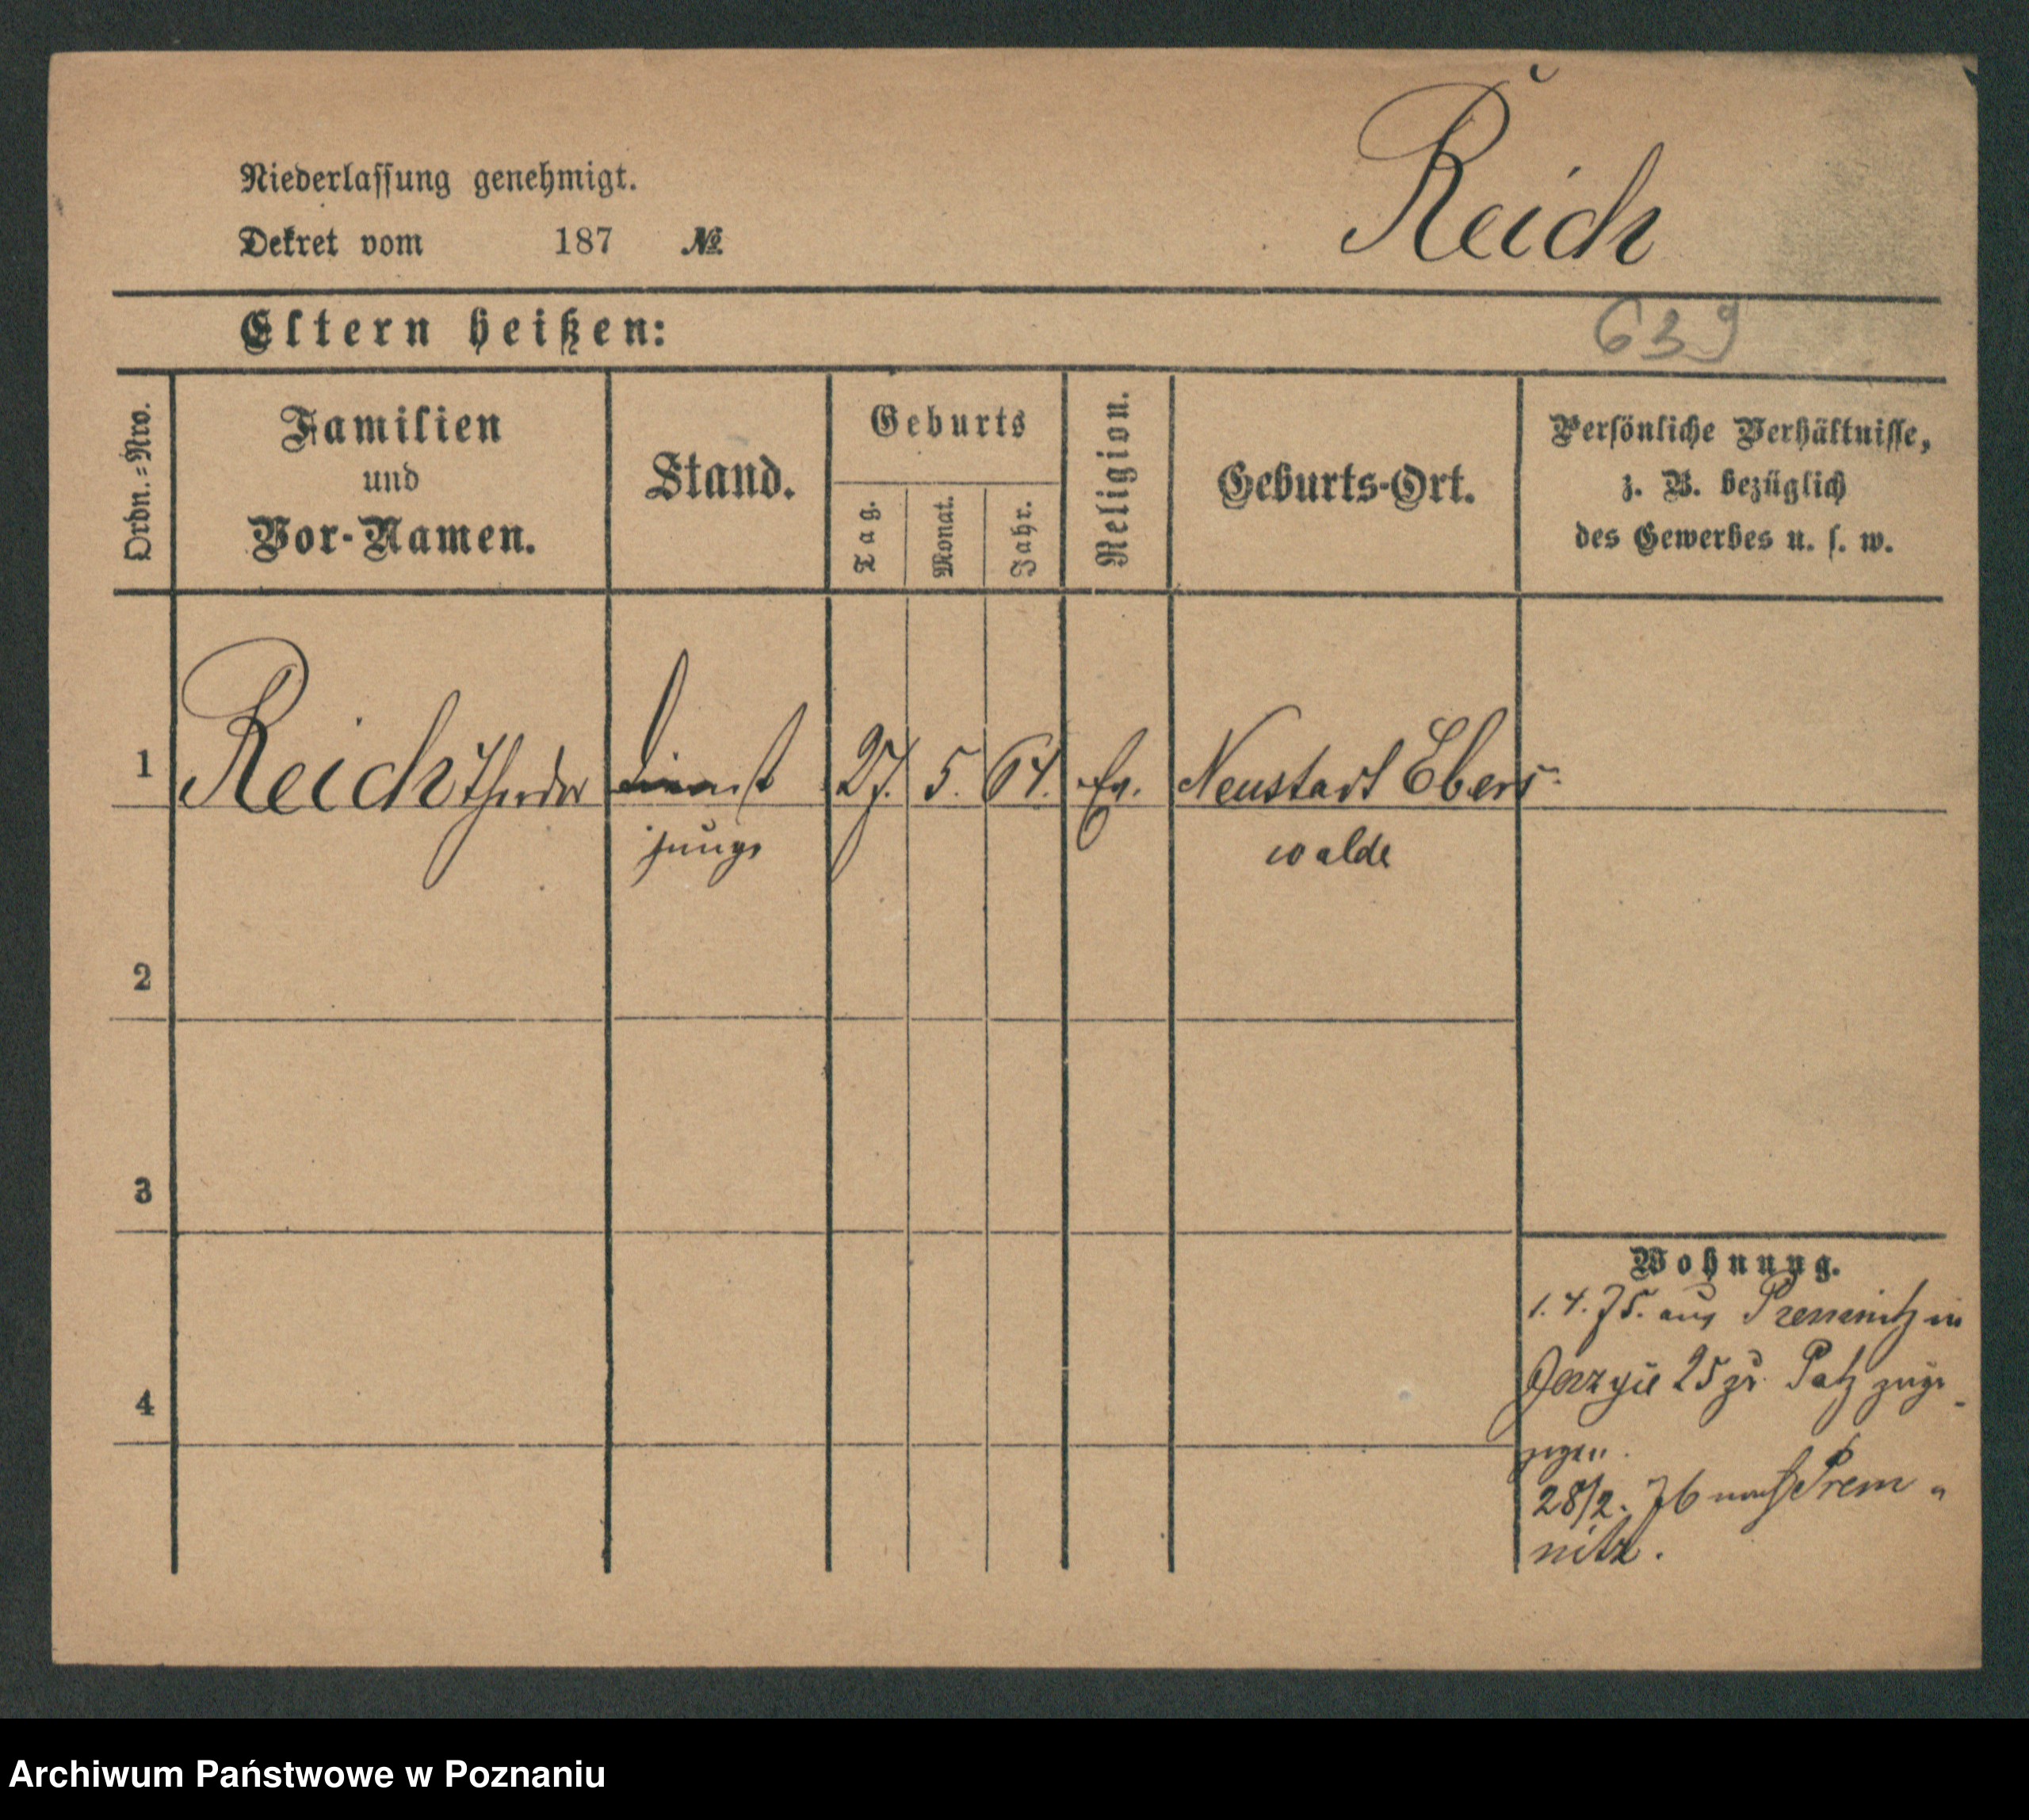 Reich
Niederlassung genehmigt.
Dekret vom 187 №
Eltern heißen:
639
Ordn.=Nro.
Familien
und
Vor-Namen.
Stand.
Geburts
Tag.
Monat.
Jahr.
Religion.
Geburts-Ort.
Persönliche Verhältnisse,
z. B. bezüglich
des Gewerbes u. s. w.
1 Reich Theodor Dienst 27. 5. 61. Ev. Neustadt Ebers-
junge walde
2
3
4
Wohnung.
1. 4. 75. aus Premnitz in
25 zu zuge-
zogen.
28/2. 76 nach Prem-
nitz.
Archiwum Państwowe w Poznaniu